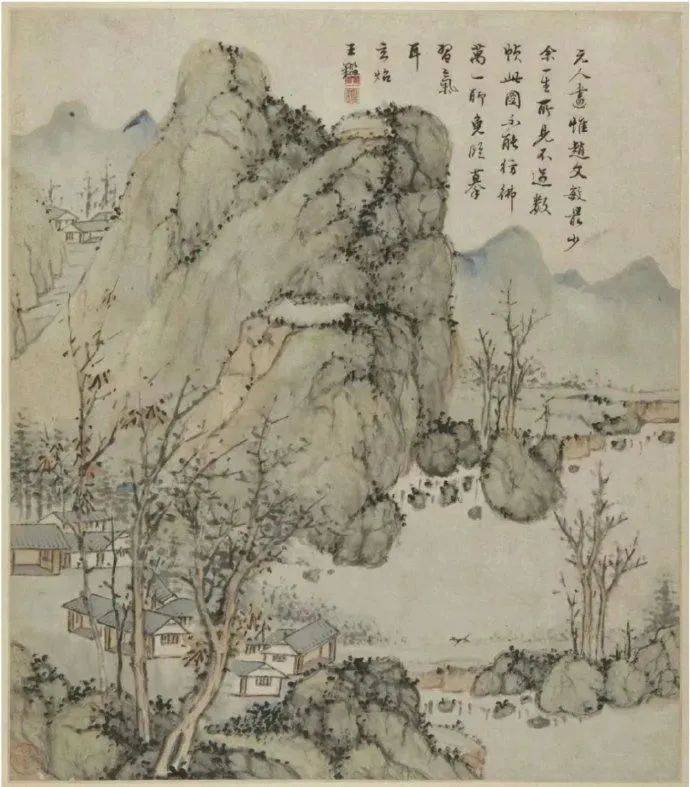 元人畫惟趙文敏最少
余一生所見不過數
幀此圖不能彷彿
萬一聊免臨摹
習氣
耳
玄炤
王鑑